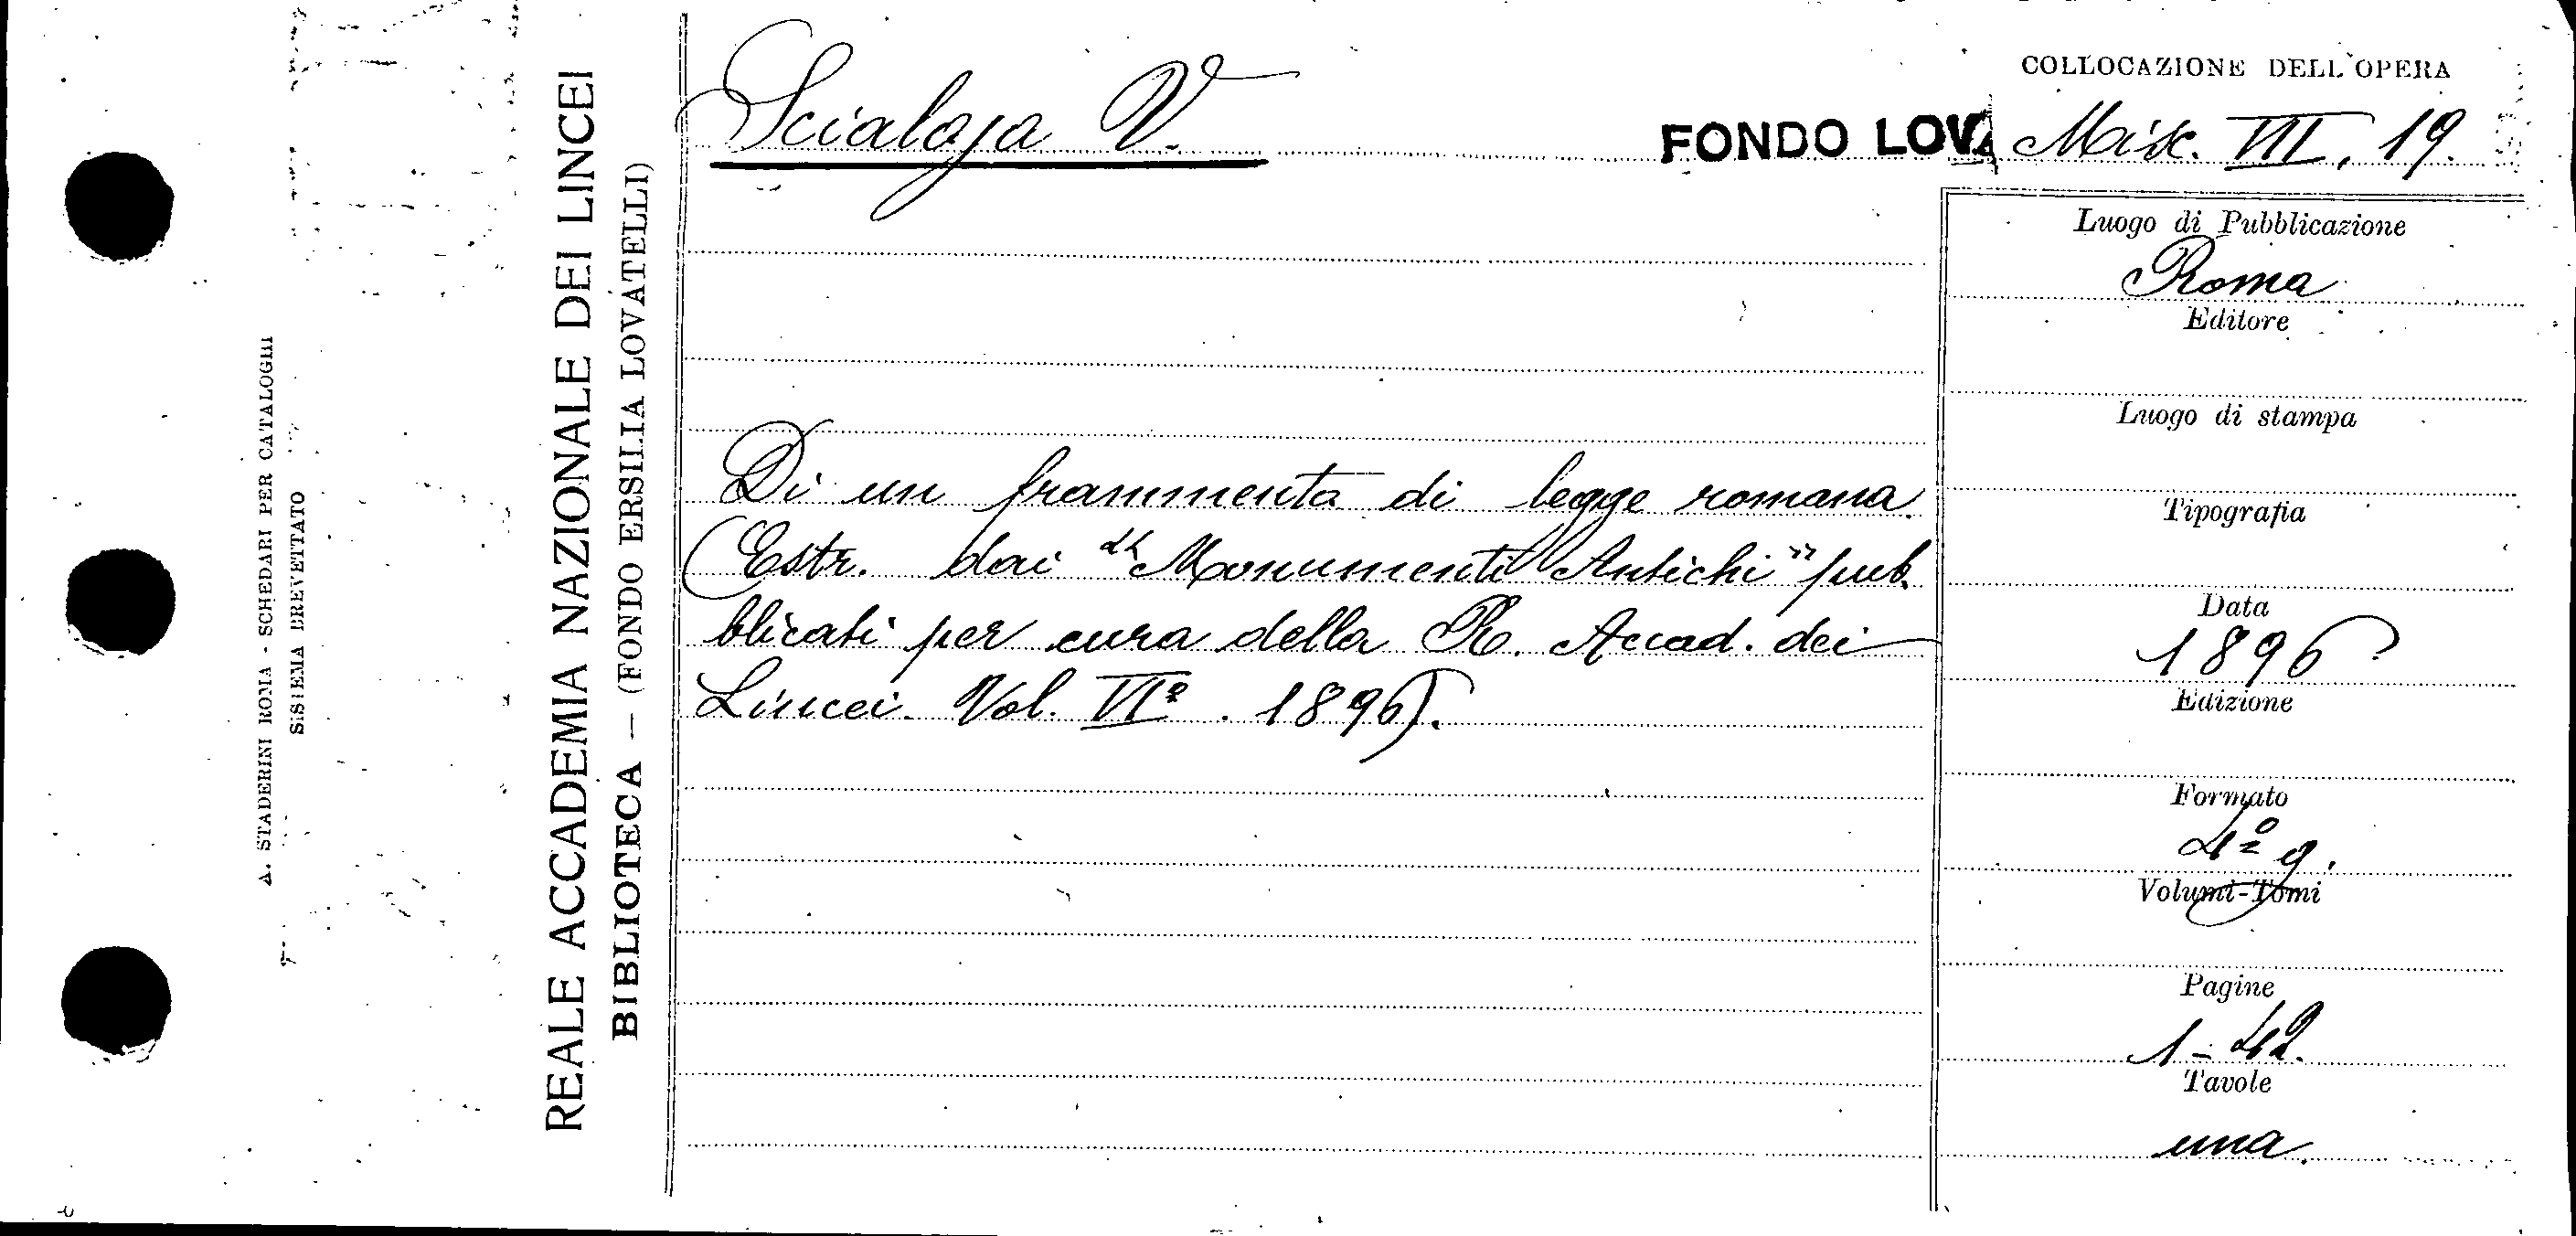 A. STADERINI ROMA - SCHEDARI PER CATALOGHI
SISTEMA BREVETTATO
REALE ACCADEMIA NAZIONALE DEI LINCEI
BIBLIOTECA — (FONDO ERSILIA LOVATELLI)
Scialoja V.
COLLOCAZIONE DELL'OPERA
FONDO LOV. Misc. VII, 19.
Di un frammento di legge romana.
(Estr. dai "Monumenti Antichi" pub
blicati per cura della R. Accad. dei
Lincei. Vol. VIº. 1896).
Luogo di Pubblicazione
Roma
Editore
Luogo di stampa
Tipografia
Data
1896
Edizione
Formato
4º g.
Volumi-Tomi
Pagine
1-42.
Tavole
una.